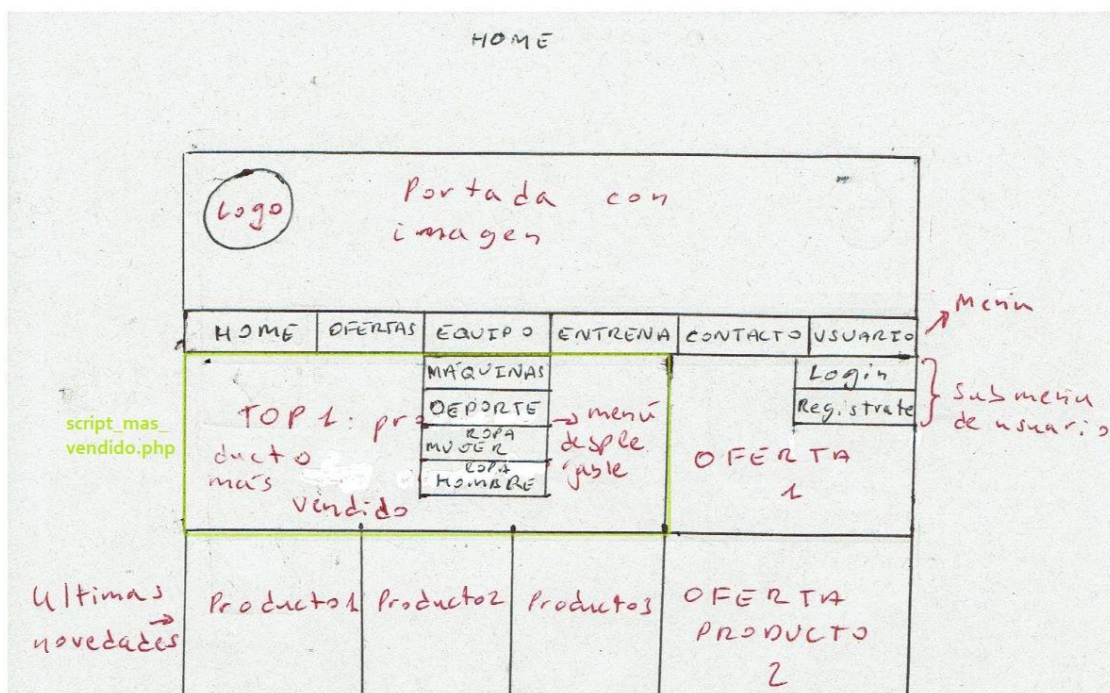 HOME
Logo
Portada con
imagen
HOME OFERTAS EQUIPO ENTRENA CONTACTO USUARIO
Menú
MÁQUINAS
DEPORTE
ROPA
MUJER
ROPA
HOMBRE
menú
desple
gable
Login
Registrate
Submenu
de usuario
script_mas_
vendido.php
TOP 1: pro
ducto
más
vendido
OFERTA
1
Ultimas
novedades
Producto1 Producto2 Producto3
OFERTA
PRODUCTO
2